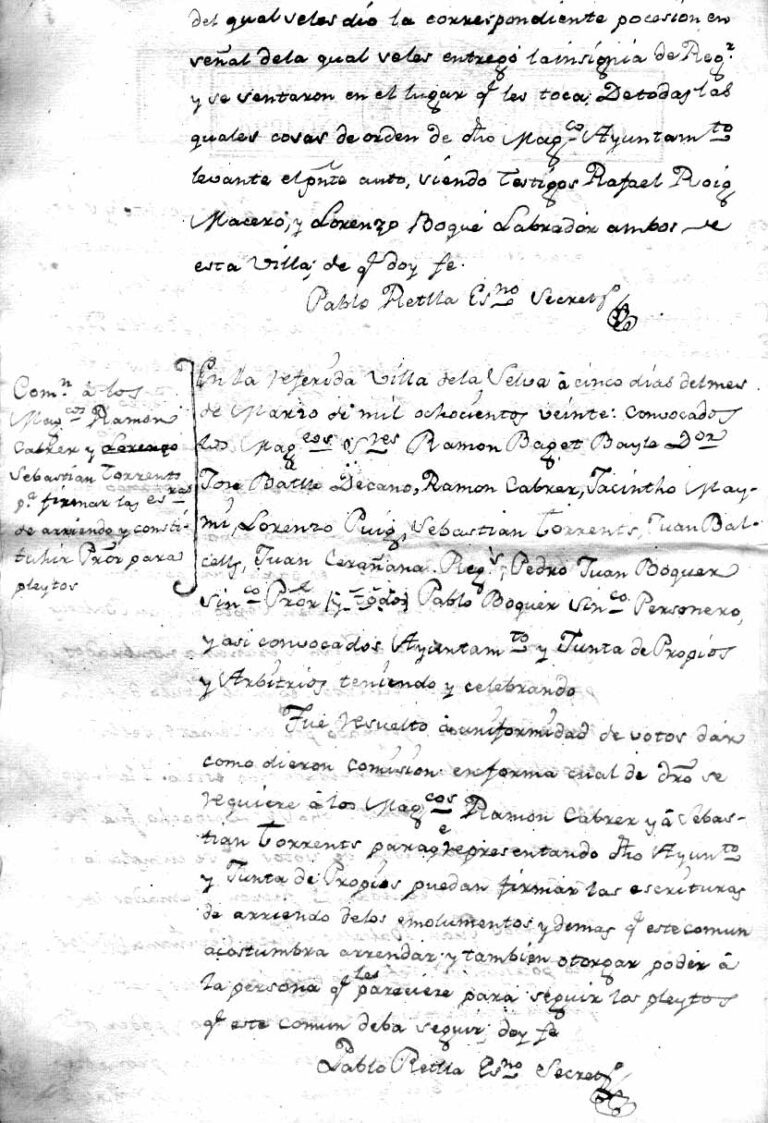 del qual seles dío la correspondiente pocesíon en
señal dela qual seles entregó la insignia de Reg.r
y se sentaron en el lugar q.e les toca. De todas las
quales cosas de orden de dho Mag.co Ayuntam.to
levante el pnte auto, siendo Testigos Rafael Roig
Macero, y Lorenzo Boqué Labrador ambos de
esta Villa; de q.e doy fe.
Pablo Retlla Es.no Secret.o
Com.n à los
Mag.cos Ramon
Cabrer y Lorenzo
Sebastian Torrents
p.a firmar las es.ras
de arriendo y consti-
tuhir Pror para
pleytos
En la referida Villa dela Selva à cinco dias del mes
de Marzo de mil ochocientos veinte: convocados
los Mag.cos S.res Ramon Baget Bayle D.on
Jose Batlle Decano, Ramon Cabrer, Jacintho May-
mi, Lorenzo Puig, Sebastian Torrents, Juan Bal-
cells, Juan Cerañana Reg.s, Pedro Juan Boquer
Sin.co Pror y Pablo Boquer Sin.co Personero,
y asi convocados Ayuntam.to y Junta de Propios
y Arbitrios teniendo y celebrando
Fué resuelto à uniformidad de votos dar
como dieron comision en forma cual de dro se
requiere à los Mag.cos Ramon Cabrer y à Sebas-
tian Torrents para q.e representando dho Ayun.to
y Junta de Propios puedan firmar las escrituras
de arriendo delos emolumentos y demas q.e este comun
acostumbra arrendar y tambien otorgar poder à
la persona q.e les pareciere para seguir los pleytos
q.e este comun deba seguir; doy fe
Pablo Retlla Es.no Secret.o